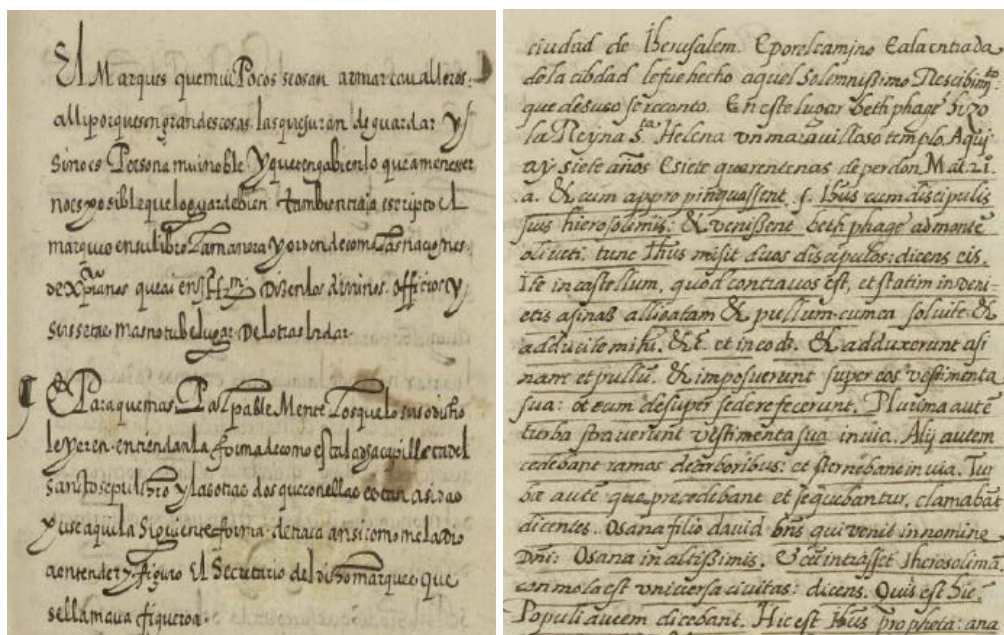 El Marques que muiPocos seosan armar caualleros.
alliporquesongrandescosas lasquejuran deguardar y
Sinoes Persona muinoble yquetengabienlo queamenester
noesposiblequeloguardebien tambientraja escripto El
marques ensulibro Lamanera yordendecom Lasnaciones.
deXpianos queai en Dizenlos diuinos officios y
sussetas masnotubelugar Delotrasladar.
Paraquemas PalpableMente Losquelo susodicho
leyeren. entiendanla formadecomo estalasacapilletadel
Sancto sepulchro ylasotras dos queconellas estan asidas
puse aquila Siguienteforma. detraca ansicomo mela dio
aentender y figuro El Secretario del dichomarques que
sellamaua figueroa.
ciudad de Iherusalem. Eporelcamino Ealaentrada
dela cibdad lefuehecho aquel solemnissimo Rescibimto
que desuso serecontó. En este lugar bethphage hizo
la Reyna sta Helena vn marauilloso templo. Aqui
ay siete años Esiete quarentenas de perdon Mat. 21.
a. & cum appropinquassent. s. Ihus cum discipulis
suis hierosolimis: & venissent bethphage admontē
oliueti. tunc Ihus misit duos discipulos: dicens eis.
Ite incastellum, quod contrauos est, et statim inueni-
etis asinam alligatam & pullum cumea soluite &
adducite mihi, &c. et incod. & adduxerunt asi
nam et pullū. & imposuerunt super eos vestimenta
sua: et eum desuper sedere fecerunt. Plurima autē
turba strauerunt vestimenta sua inuia. Alij autem
cedebant ramos dearboribus: et sternebant in uia. Tur
bae autē que precedebant et sequebantur, clamabāt
dicentes. Osana filio dauid bns qui venit innomine
Dni: Osana in altissimis. & cū intrasset Iherosolimā.
conmota est vniuersa ciuitas: dicens. Quis est hic.
Populi autem dicebant. Hic est Ihus propheta: ana